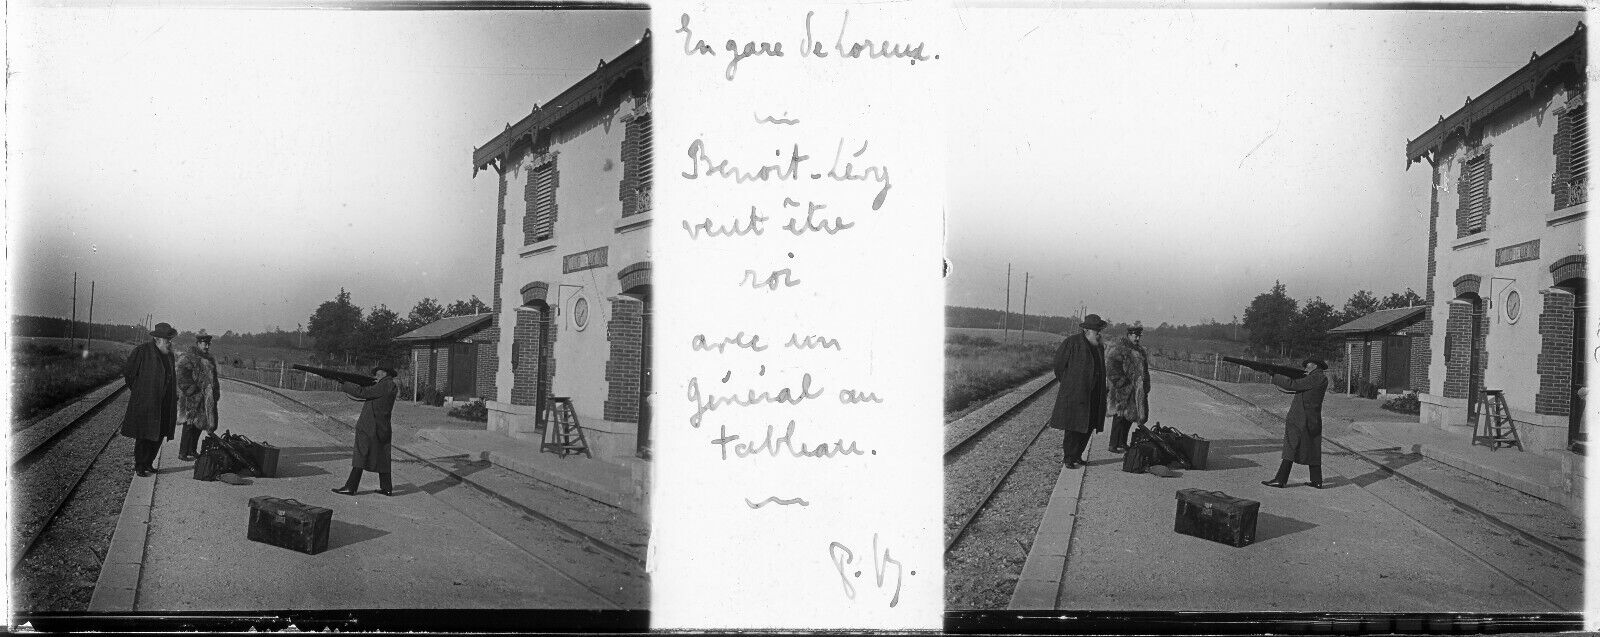 En gare de Loreux.
Benoit-Lévy
veut être
roi
avec un
général au
tableau.